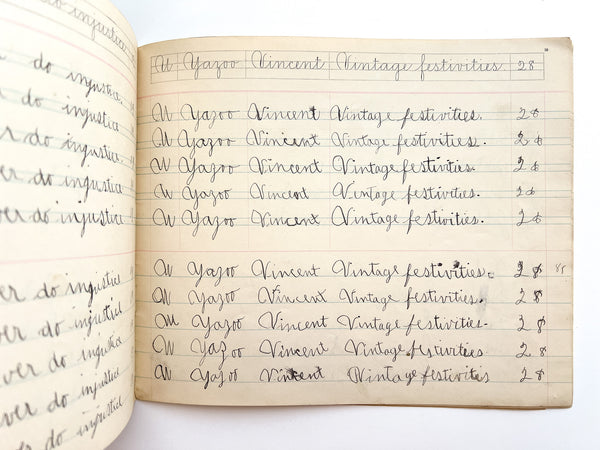 do injustice
do injustice.
do injustice
do injustice
do injustice
ver do injustice
ver do injustiel
ver do injustiel
ver do injustice
ver do injustice
ver do injustiel
do injustiel
W Yazoo Vincent Vintage festivities 28
W Yazoo Vincent Vintage festivities. 28
W Yazoo Vincent Vintage festivities. 28
W Yazoo Vincent Vintage festivities. 28
W Yazoo Vincent Vintage festivities. 28
W Yazoo Vincent Vintage festivities. 28
W Yazoo Vincent Vintage festivities. 28 85
W Yazoo Vincent Vintage festivities. 28
W Yazoo Vincent Vintage festivities. 28
W Yazoo Vincent Vintage festivities. 28
W Yazoo Vincent Vintage festivities 28